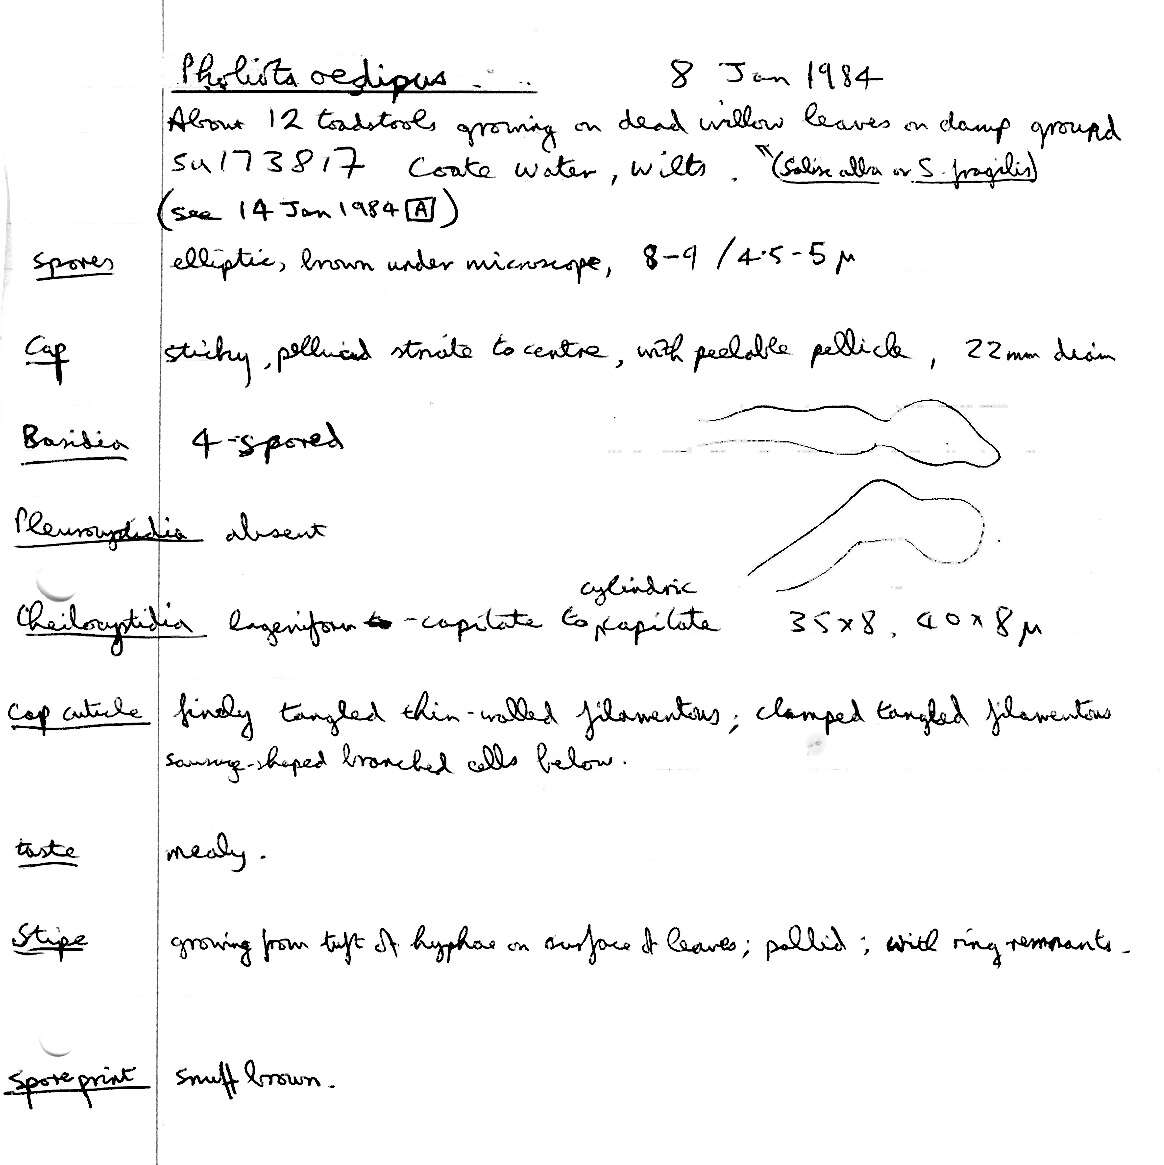 Pholiota oedipus 8 Jan 1984
About 12 toadstools growing on dead willow leaves on damp ground
SU173817 Coate Water, Wilts. "(Salix alba or S. fragilis)
(see 14 Jan 1984 A)
Spores elliptic, brown under microscope, 8-9 / 4.5-5 µ
Cap sticky, pellucid striate to centre, with peelable pellicle, 22mm diam
Basidia 4-spored
Pleurocystidia absent
cylindric
Cheilocystidia lageniform-capitate to capitate 35x8, 40x8 µ
Cap cuticle finely tangled thin-walled filamentous; clamped tangled filamentous
sausage-shaped branched cells below.
taste mealy.
Stipe growing from tuft of hyphae on surface of leaves; pallid; with ring remnants.
Spore print snuff brown.